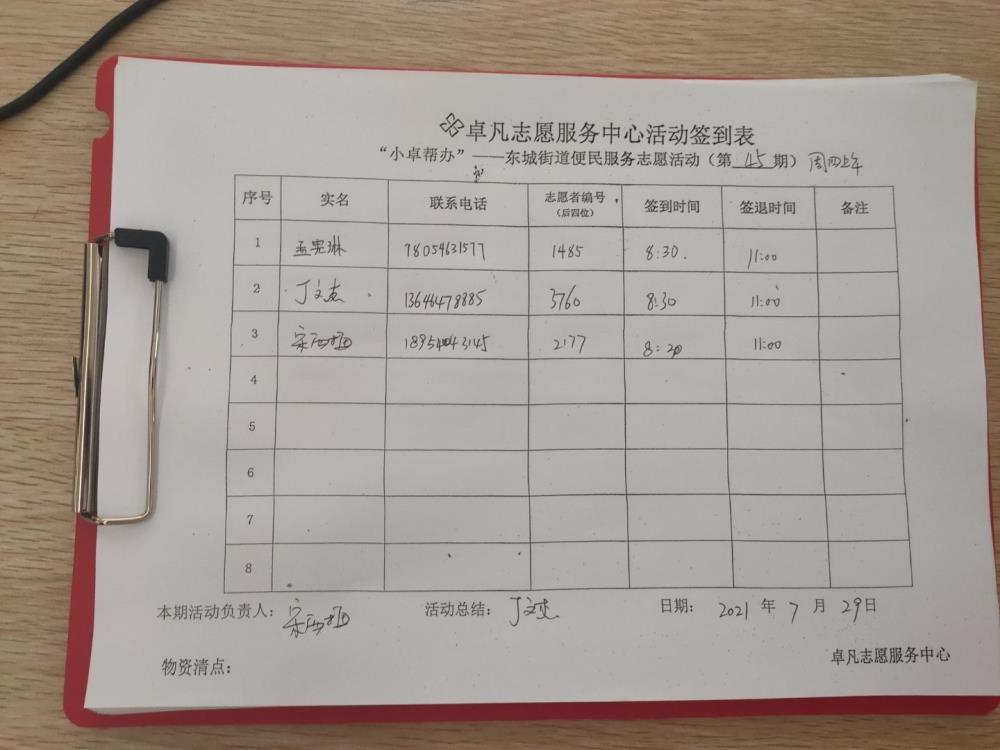 卓凡志愿服务中心活动签到表
“小卓帮办”——东城街道便民服务志愿活动（第 45 期）周四上午
序号 实名 联系电话 志愿者编号（后四位） 签到时间 签退时间 备注
1 孟宪琳 18054631577 1485 8:30 11:00
2 丁文杰 13646478885 3760 8:30 11:00
3 宋 18954043145 2177 8:20 11:00
4
5
6
7
8
本期活动负责人： 宋 活动总结： 丁文杰 日期： 2021 年 7 月 29日
物资清点： 卓凡志愿服务中心